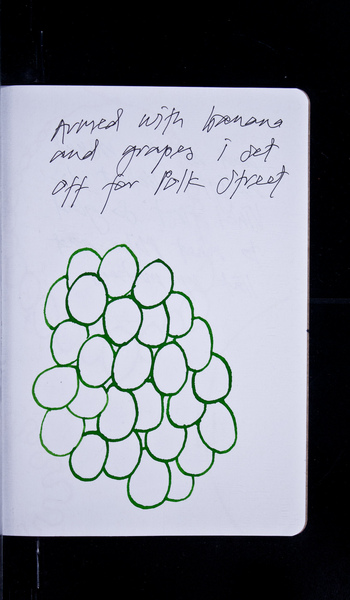 Armed with banana
and grapes i set
off for Polk Street